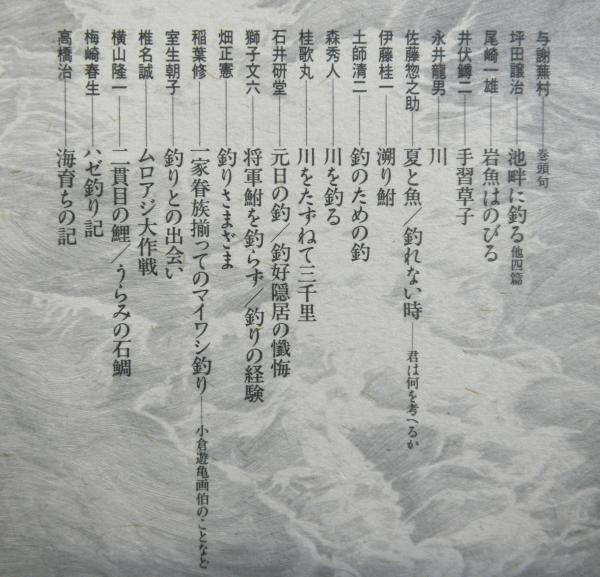 与謝蕪村――巻頭句
坪田譲治――池畔に釣る 他四篇
尾崎一雄――岩魚はのびる
井伏鱒二――手習草子
永井龍男――川
佐藤惣之助――夏と魚／釣れない時――君は何を考へるか
伊藤桂一――溯り鮒
土師清二――釣のための釣
森秀人――川を釣る
桂歌丸――川をたずねて三千里
石井研堂――元日の釣／釣好隠居の懺悔
獅子文六――将軍鮒を釣らず／釣りの経験
畑正憲――釣りさまざま
稲葉修――一家眷族揃ってのマイワシ釣り――小倉遊亀画伯のことなど
室生朝子――釣りとの出会い
椎名誠――ムロアジ大作戦
横山隆一――二貫目の鯉／うらみの石鯛
梅崎春生――ハゼ釣り記
高橋治――海育ちの記